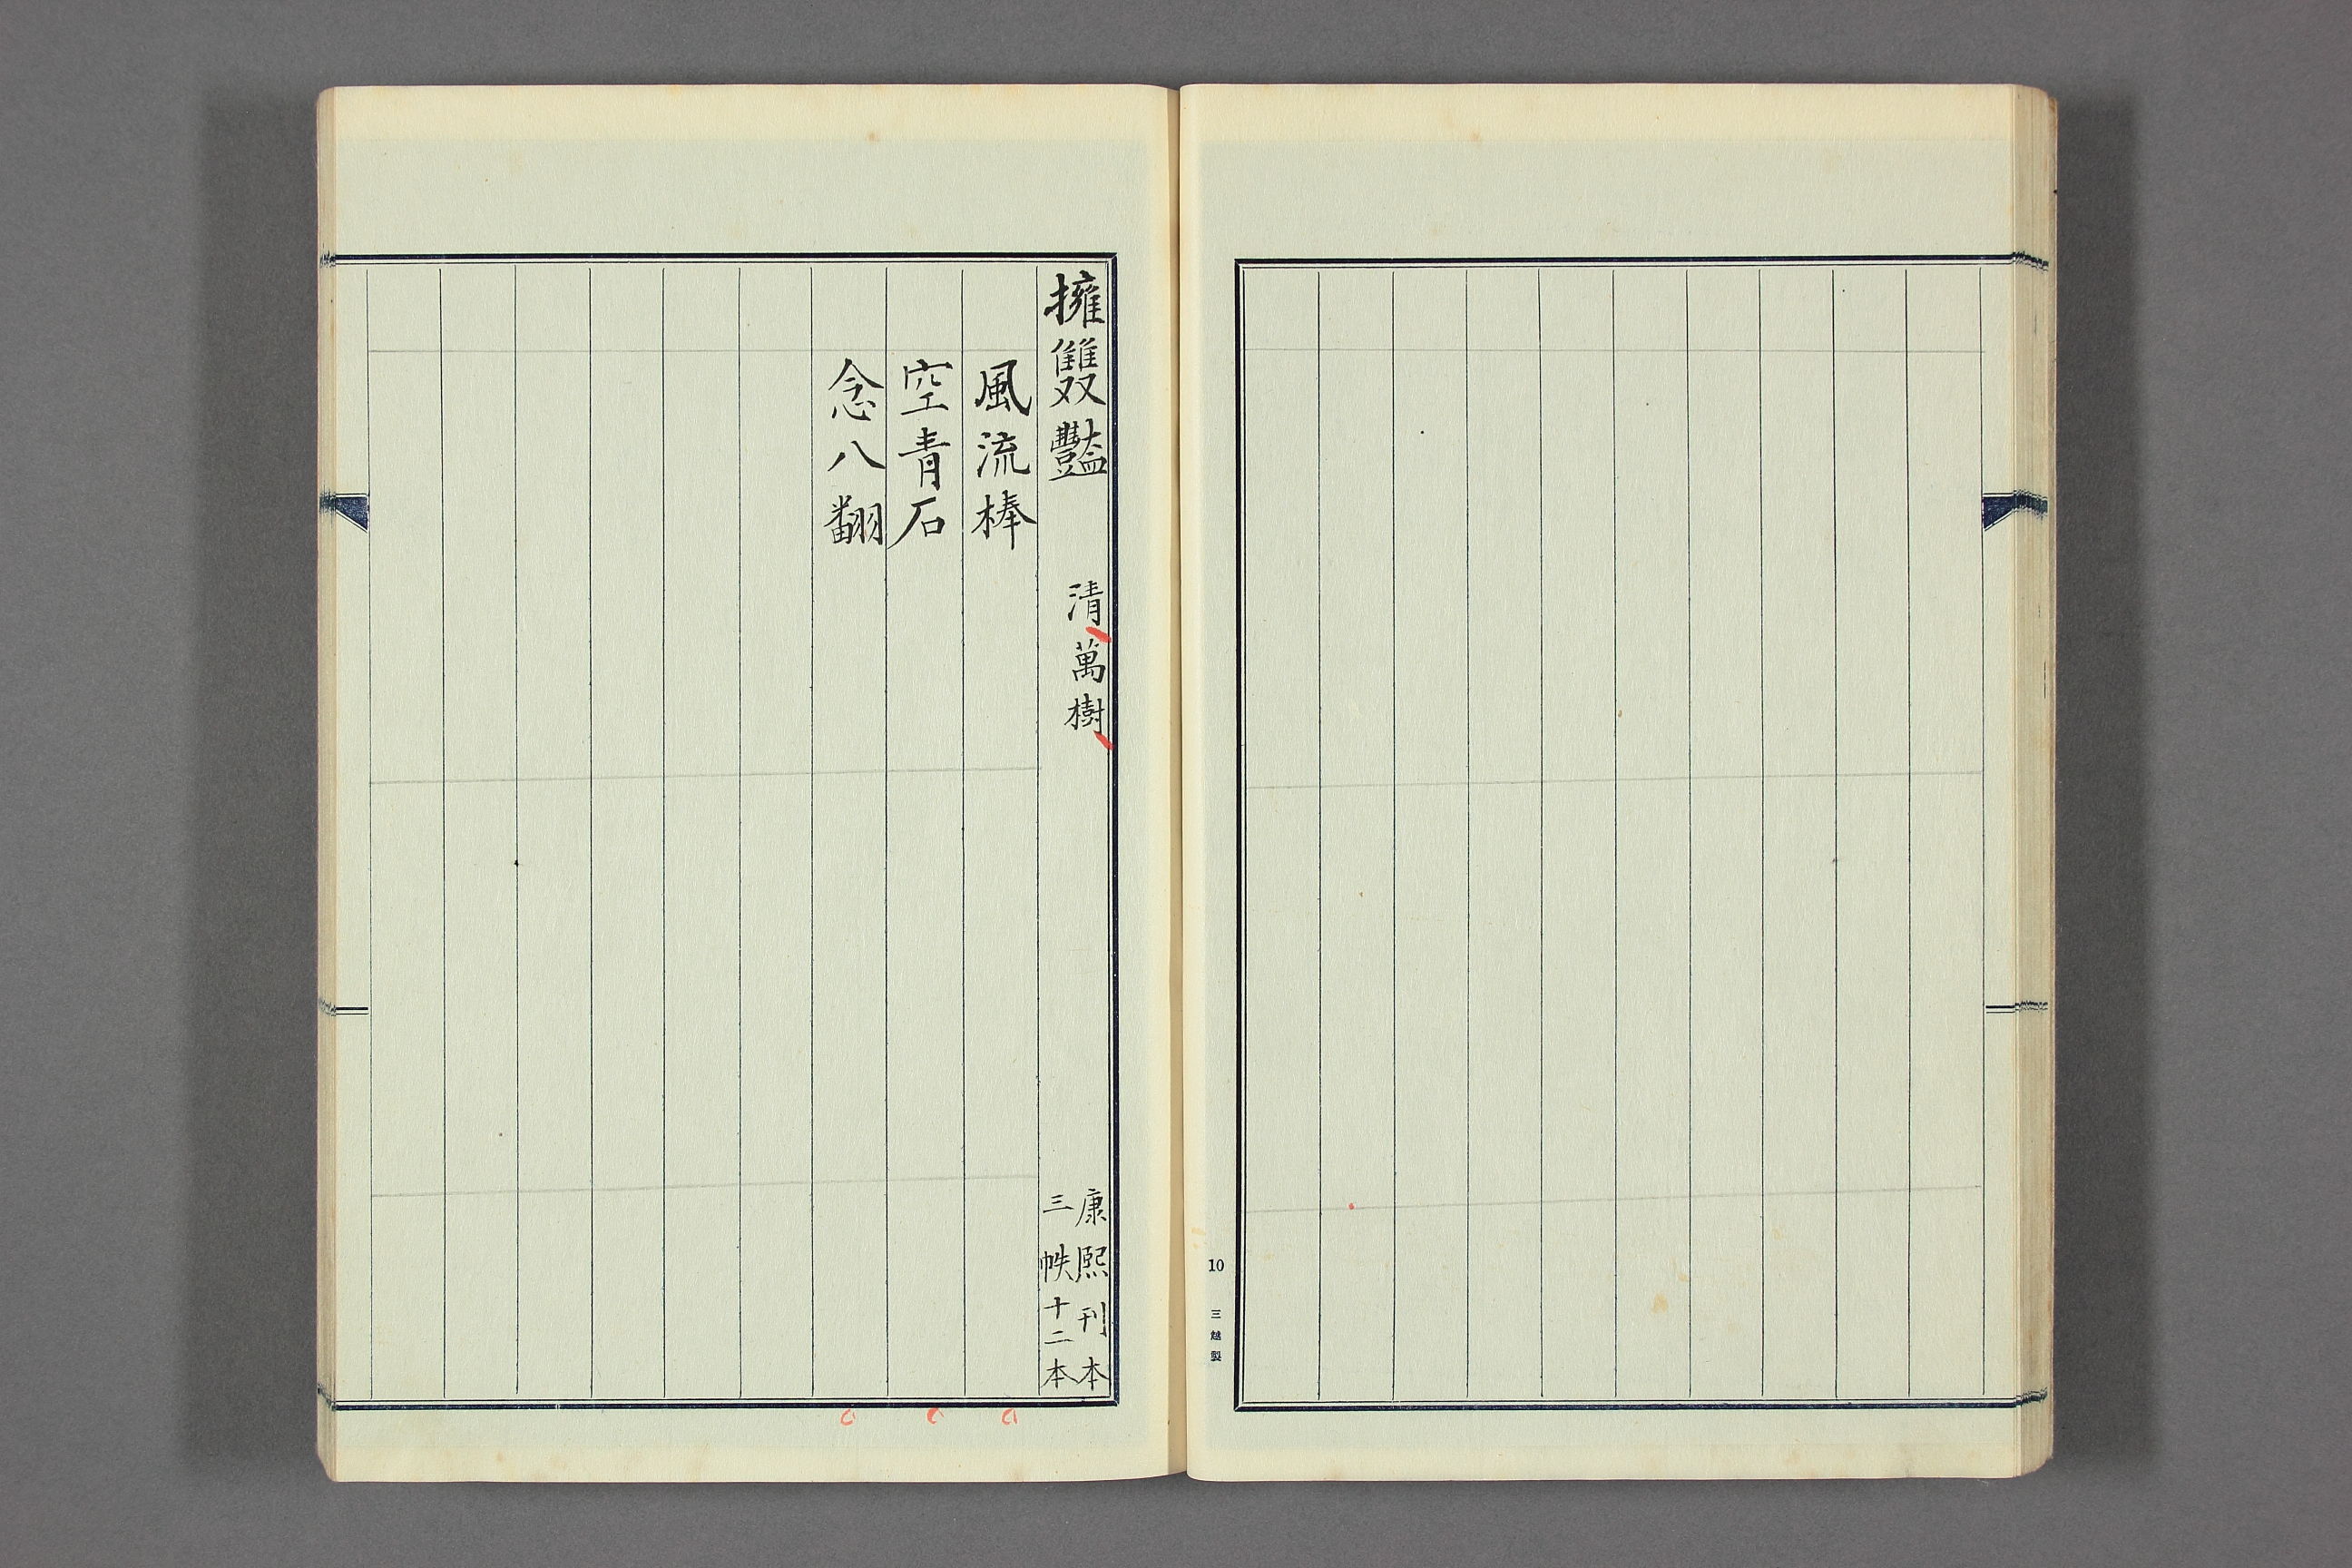 10 三越製
擁雙豔 清萬樹 康熙刊本
三帙十二本
風流棒
空青石
念八翻